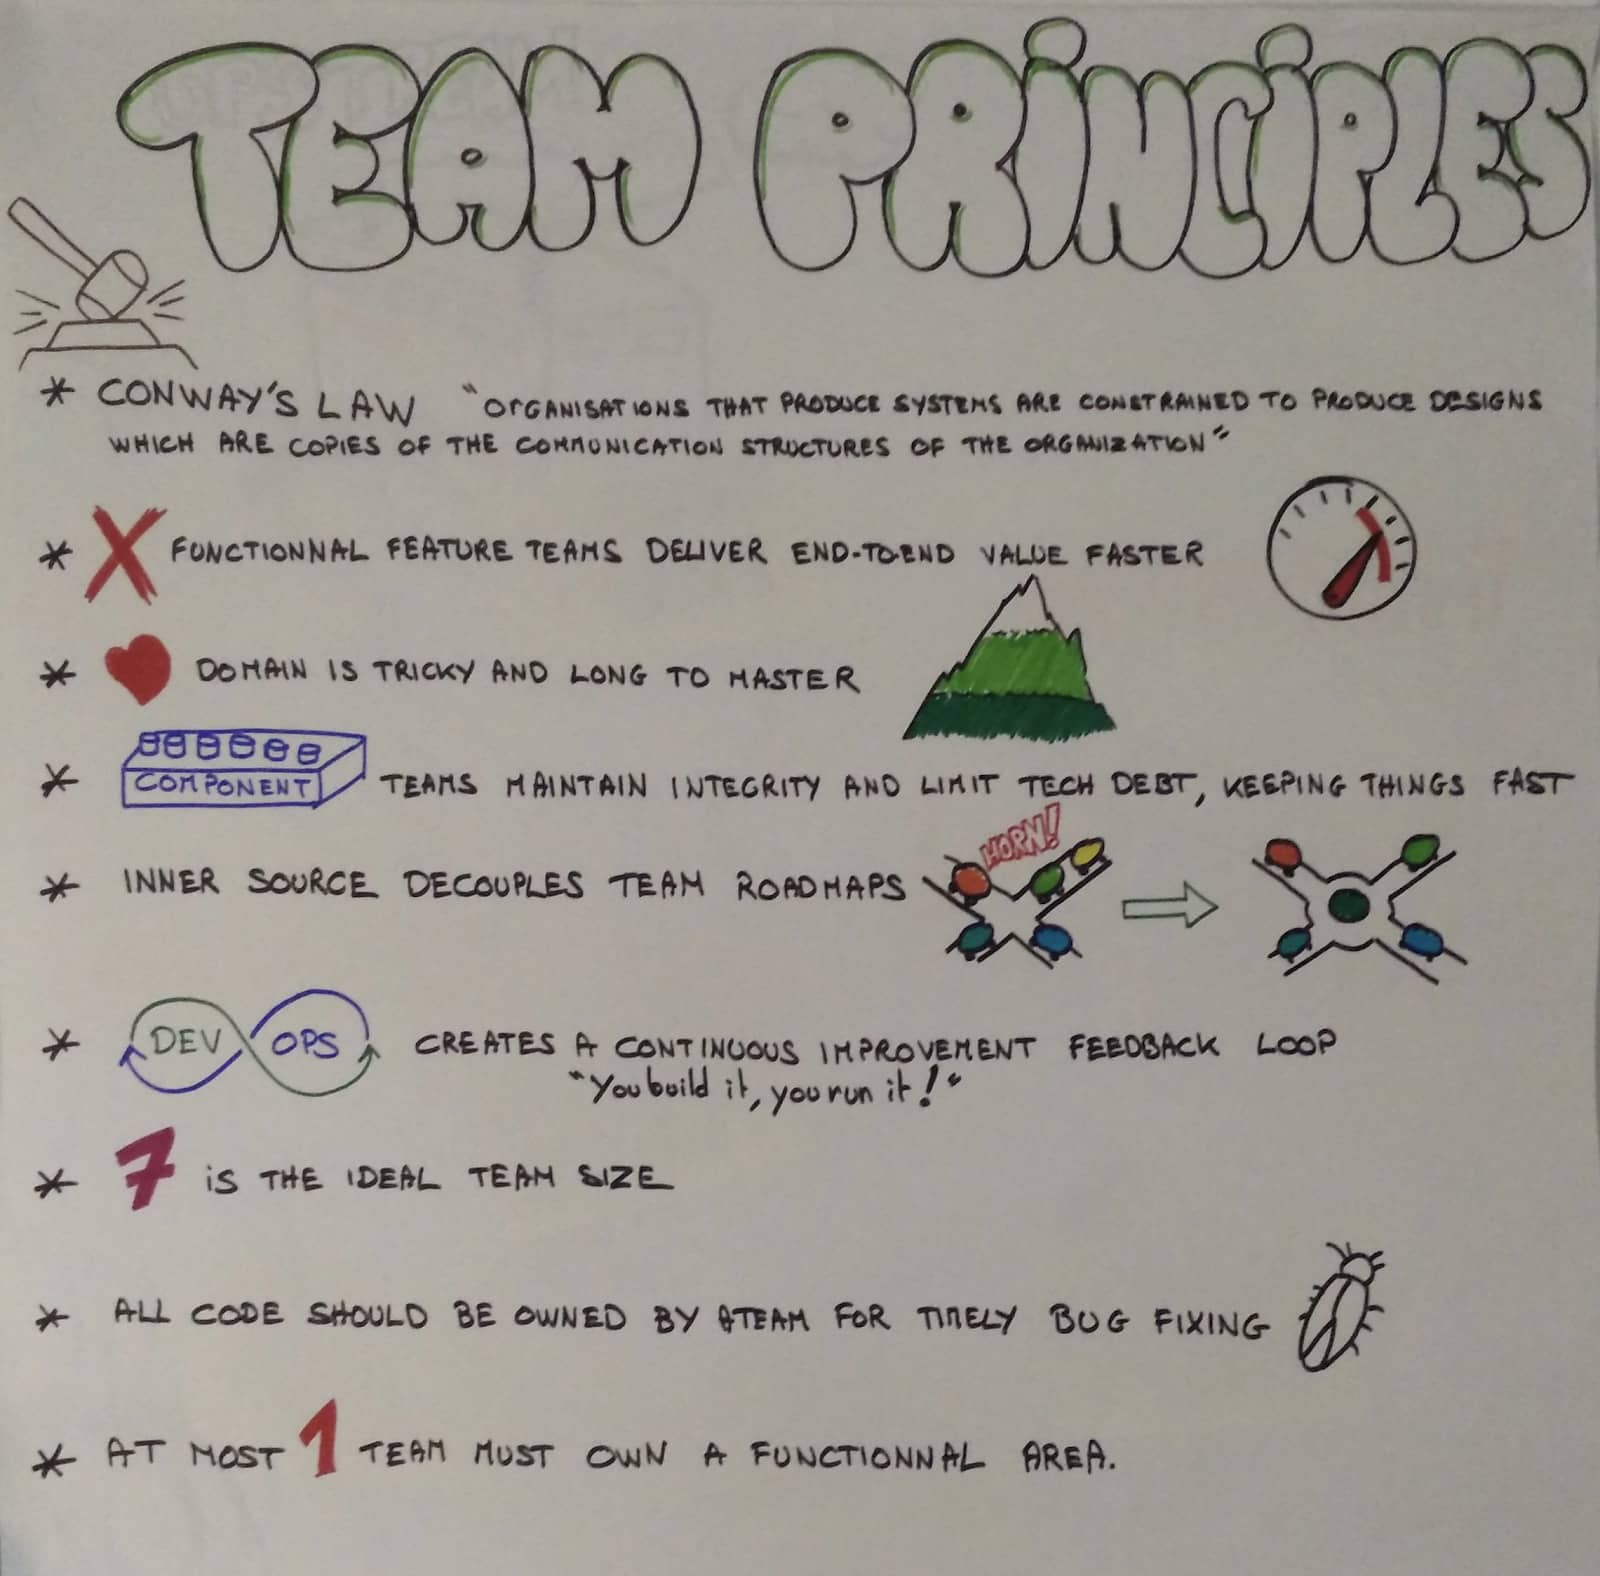 TEAM PRiNCiPLES
* CONWAY'S LAW "ORGANISATIONS THAT PRODUCE SYSTEMS ARE CONSTRAINED TO PRODUCE DESIGNS
WHICH ARE COPIES OF THE COMMUNICATION STRUCTURES OF THE ORGANIZATION"
* X FUNCTIONNAL FEATURE TEAMS DELIVER END-TO-END VALUE FASTER
* DOMAIN IS TRICKY AND LONG TO MASTER
* COMPONENT TEAMS MAINTAIN INTEGRITY AND LIMIT TECH DEBT, KEEPING THINGS FAST
HORN!
* INNER SOURCE DECOUPLES TEAM ROADMAPS
* DEV OPS CREATES A CONTINUOUS IMPROVEMENT FEEDBACK LOOP
"You build it, you run it!"
* 7 iS THE IDEAL TEAM SIZE
* ALL CODE SHOULD BE OWNED BY A TEAM FOR TIMELY BUG FIXING
* AT MOST 1 TEAM MUST OWN A FUNCTIONNAL AREA.